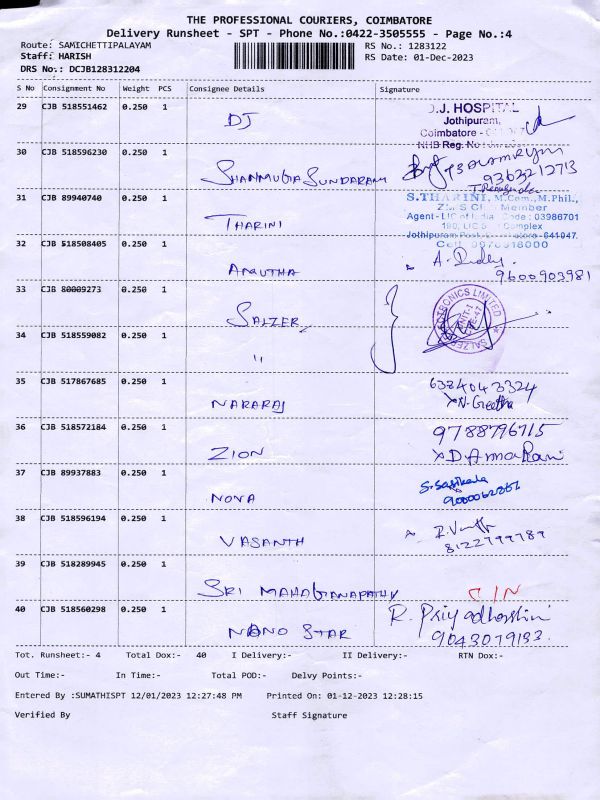 THE PROFESSIONAL COURIERS, COIMBATORE
Delivery Runsheet - SPT - Phone No.:0422-3505555 - Page No.:4
Route: SAMICHETTIPALAYAM RS No.: 1283122
Staff: HARISH RS Date: 01-Dec-2023
DRS No.: DCJB128312204
S No Consignment No Weight PCS Consignee Details Signature
29 CJB 518551462 0.250 1 DJ
D.J. HOSPITAL
Jothipuram,
Coimbatore -
NHB Reg. No
30 CJB 518596230 0.250 1 SHANMUGA SUNDARAM
9363212713
31 CJB 89940740 0.250 1 THARINI
S.THARINI, M.Com., M.Phil.,
Member
Agent - LIC of India Code: 03986701
Complex
Jothipuram Post, - 641047.
32 CJB 518508405 0.250 1 AMUTHA
9600903981
33 CJB 80009273 0.250 1 SALZER
SALZER ELECTRONICS LIMITED
UNIT-I
34 CJB 518559082 0.250 1 "
35 CJB 517867685 0.250 1 NARARAJ
6384043324
N. Geetha
36 CJB 518572184 0.250 1 ZION
9788796715
37 CJB 89937883 0.250 1 NOVA
S. Sasikala
38 CJB 518596194 0.250 1 VASANTH
8122799789
39 CJB 518289945 0.250 1 SRI MAHAGANAPATHY
40 CJB 518560298 0.250 1 NANO STAR
R. Priyadharshini
9043079193.
Tot. Runsheet:- 4 Total Dox:- 40 I Delivery:- II Delivery:- RTN Dox:-
Out Time:- In Time:- Total POD:- Delvy Points:-
Entered By :SUMATHISPT 12/01/2023 12:27:48 PM Printed On: 01-12-2023 12:28:15
Verified By Staff Signature